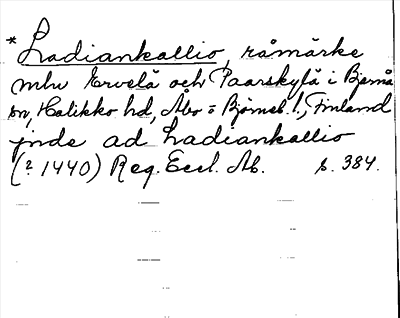 * Ladiankallio, råmärke
mlm Ervelä och Paarskylä i Bjernå
sn, Halikko hd, Åbo o Bjömeb. l., Finland
jnde ad Ladiankallio
(? 1440) Reg. Eccl. Ab. s. 384.